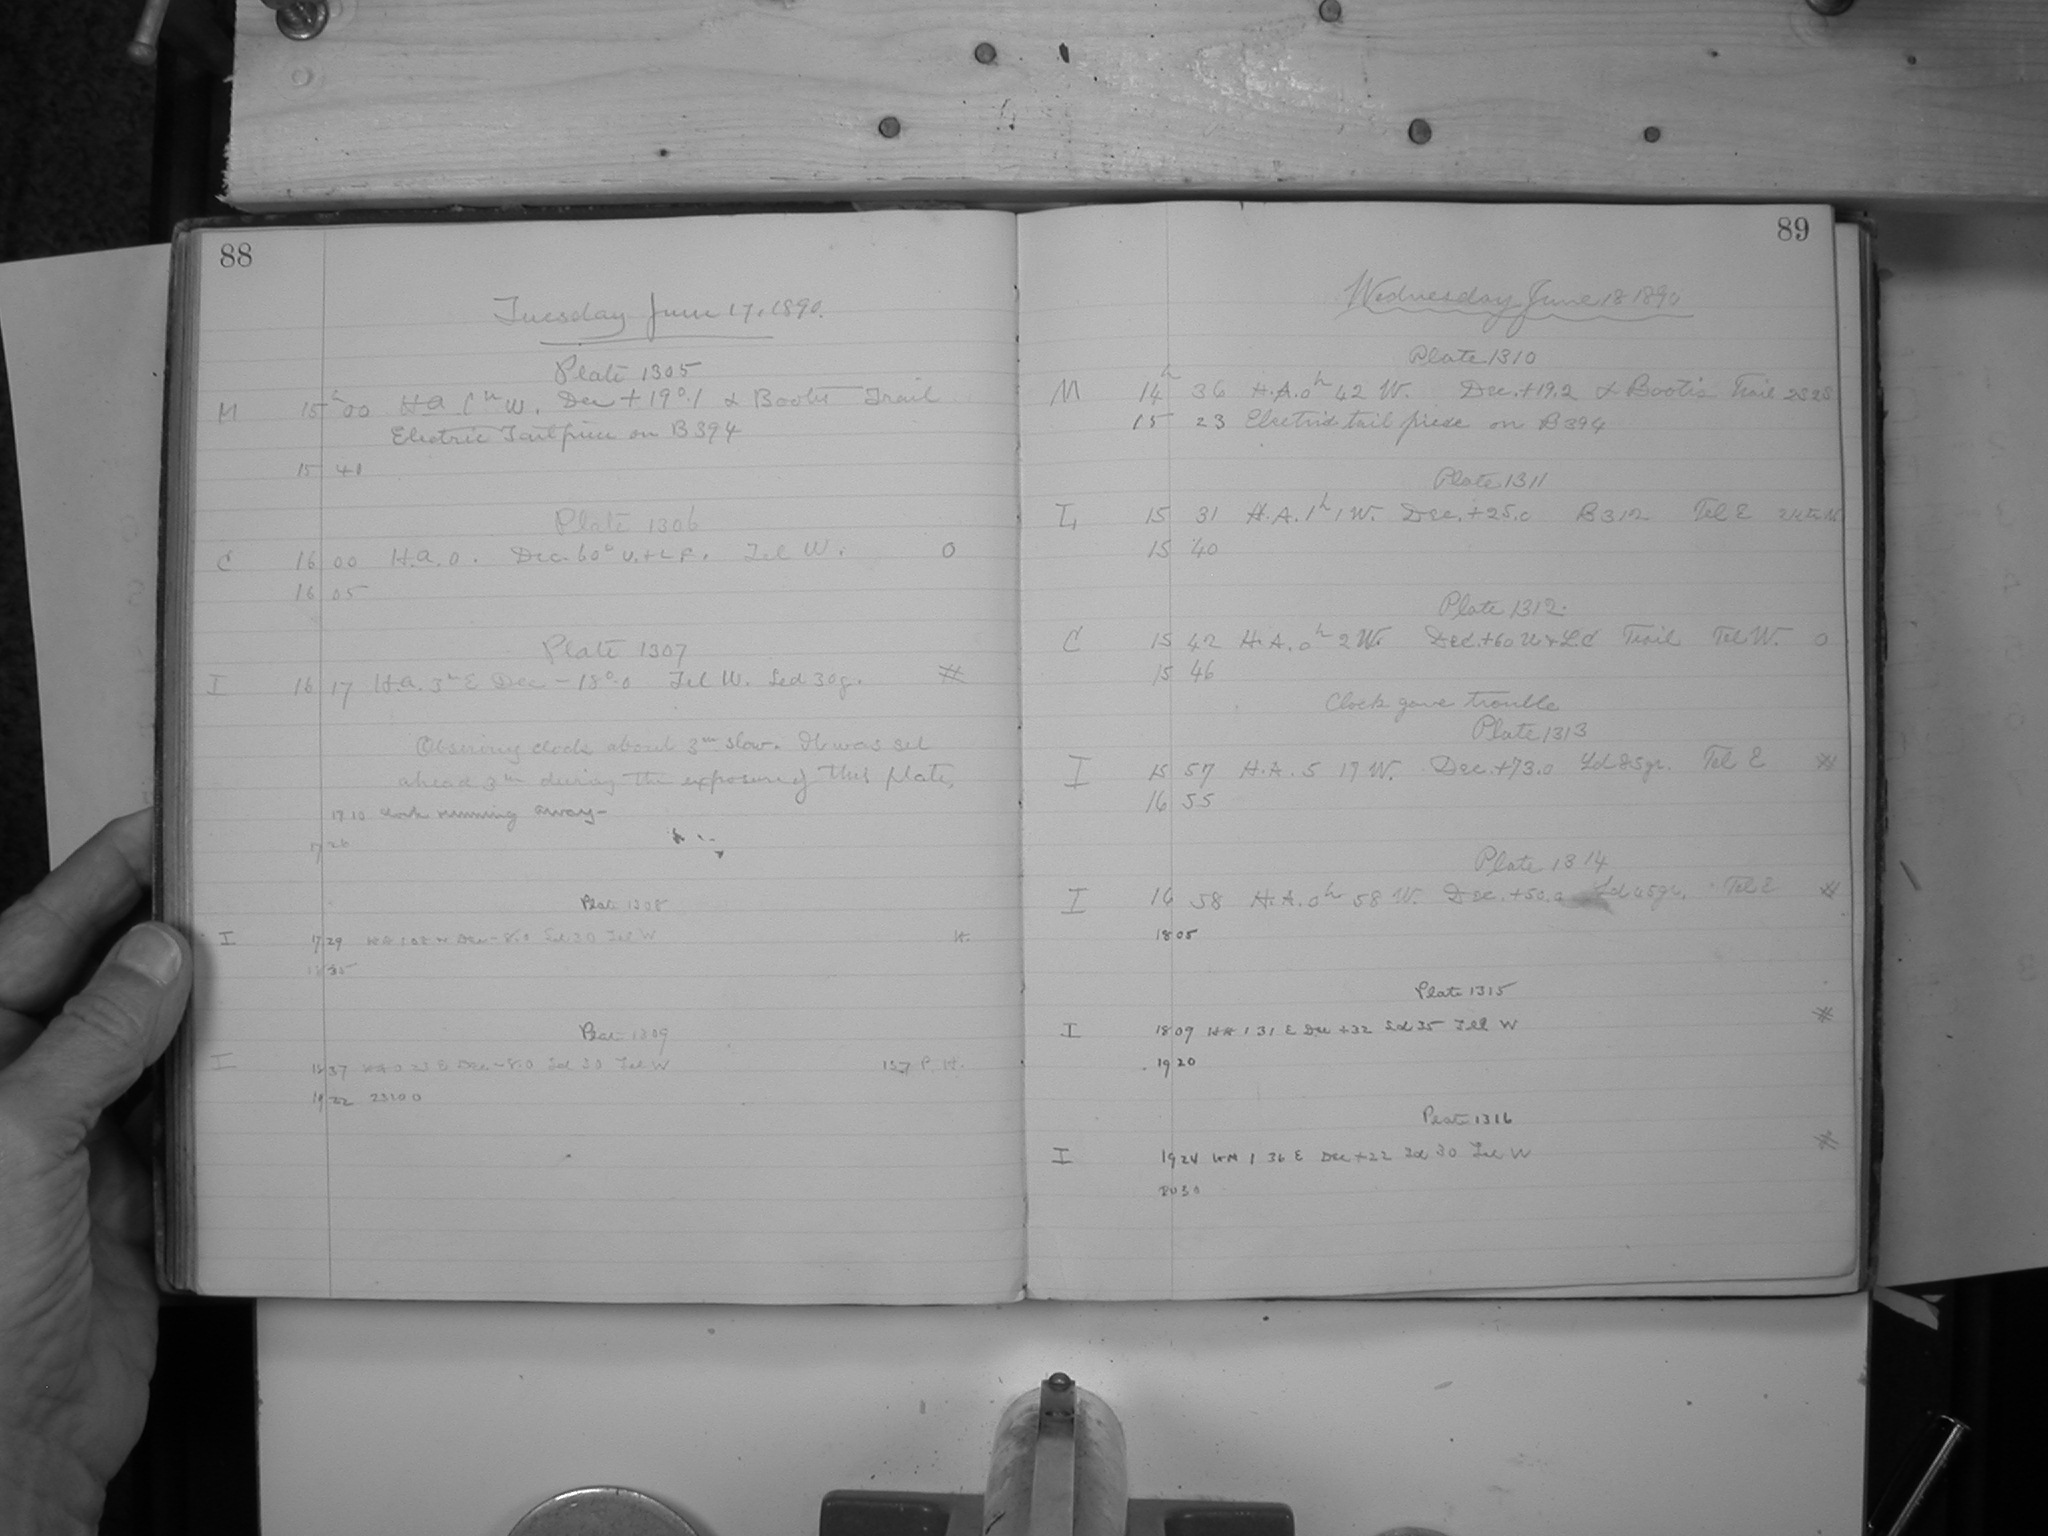 88
Tuesday June 17, 1890.
Plate 1305
M 15h 00 H.A. 1h W. Dec +19°.1 α Bootis Trail
Electric Tailpiece on B394
15 41
Plate 1306
C 16 00 H.A. 0. Dec. 60° U. + L.C. Tel W. 0
16 05
Plate 1307
I 16 17 H.A. 3h E Dec -18°.0 Tel W. Led 30g. #
Observing clock about 3m slow. It was set
ahead 3m during the exposure of this plate,
17 10 clock running away-
17 28
Plate 1308
I 17 29 HA Dec -8.0 Led 30 Tel W H.
18 35
Plate 1309
I 18 37 HA 0 23 E Dec -8.0 Led 30 Tel W P. H.
19 22 23100
89
Wednesday June 18 1890
Plate 1310
M 14h 36 H.A. 0h 42 W. Dec. +19.2 α Bootis Trail 2828
15 23 Electric tail piece on B394
Plate 1311
I 15 31 H.A. 1h 1 W. Dec. +25.0 B312 Tel E
15 40
Plate 1312.
C 15 42 H.A. 0h 2 W. Dec. +60 U + L.C Trail Tel W. 0
15 46
Clock gave trouble
Plate 1313
I 15 57 H.A. 5 19 W. Dec. +73.0 Ld 85gr. Tel E #
16 55
Plate 1314
I 16 58 H.A. 0h 58 W. Dec. +50.0 Ld 45gr. Tel E #
18 05
Plate 1315
I 18 09 HA 1 31 E Dec +32 Ld 35 Tel W #
19 20
Plate 1316
I 19 24 HA 1 36 E Dec +22 Ld 30 Tel W #
20 30